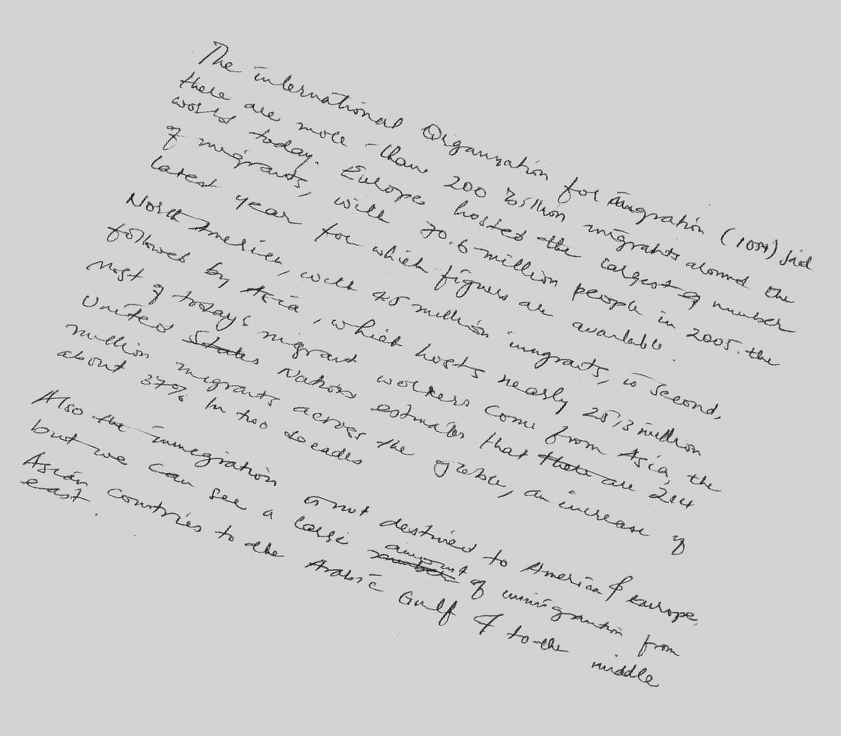 The international Organization for migration (IOM) said
there are more than 200 billion migrants around the
world today. Europe hosted the largest number
of migrants, with 70.6 million people in 2005. the
latest year for which figures are available.
North America, with 45 million imigrants, is second,
followed by Asia, which hosts nearly 25,3 million
most of today's migrant workers come from Asia, the
United Nations estimates that there are 214
million migrants across the globe, an increase of
about 37% In two decades
Also the immigration is not destined to America & europe,
but we can see a large amount of immigration from
Asian countries to the Arabic Gulf & to the middle
east.